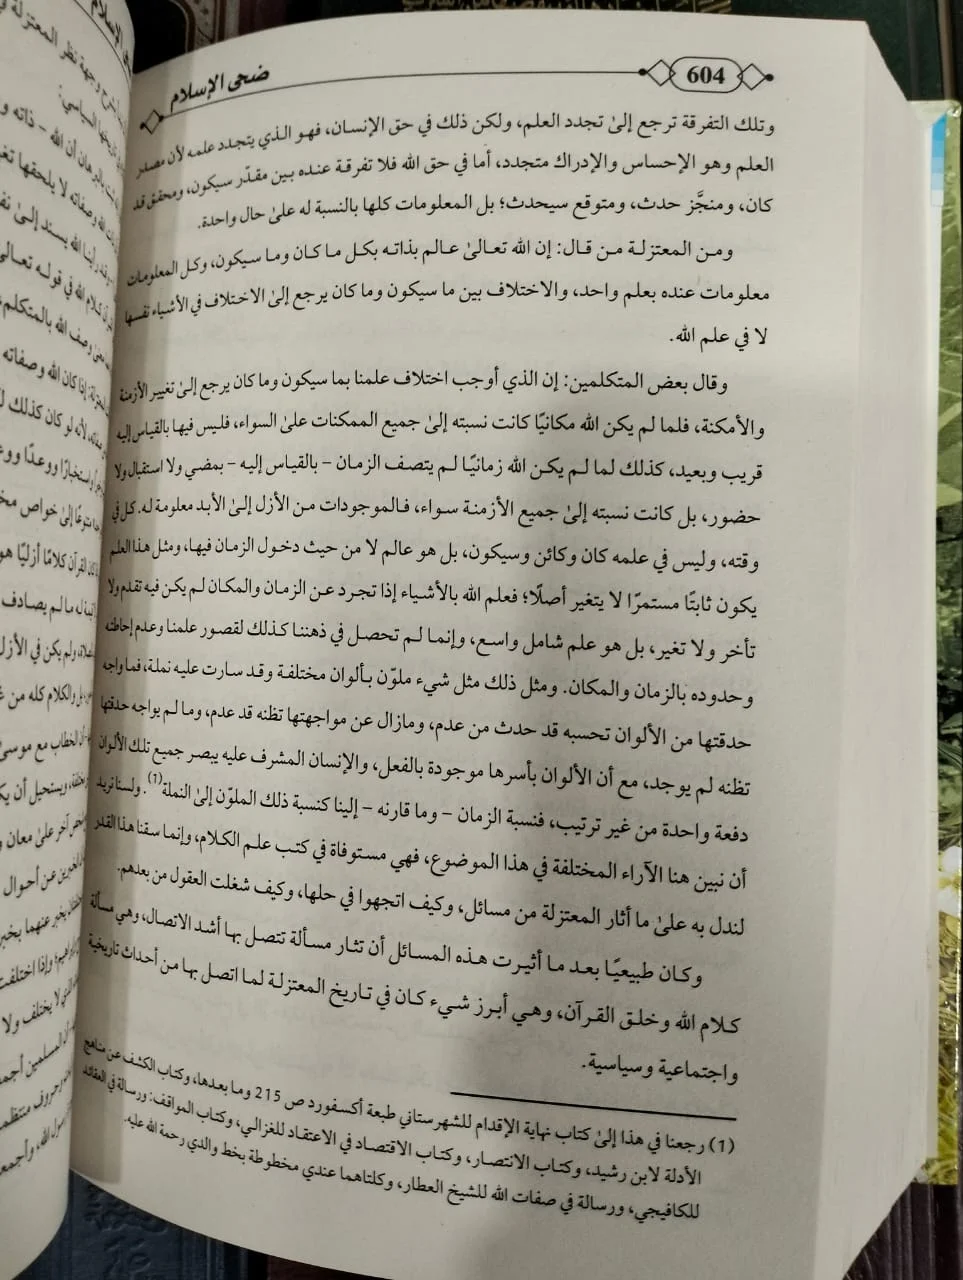 604
ضحى الإسلام
وتلك التفرقة ترجع إلىٰ تجدد العلم، ولكن ذلك في حق الإنسان، فهو الذي يتجدد علمه لأن مصدر
العلم وهو الإحساس والإدراك متجدد، أما في حق الله فلا تفرقة عنده بين مقدّر سيكون، ومحقق قد
كان، ومنجَّز حدث، ومتوقع سيحدث؛ بل المعلومات كلها بالنسبة له علىٰ حال واحدة.
ومن المعتزلة من قال: إن الله تعالىٰ عالم بذاته بكل ما كان وما سيكون، وكل المعلومات
معلومات عنده بعلم واحد، والاختلاف بين ما سيكون وما كان يرجع إلىٰ الاختلاف في الأشياء نفسها
لا في علم الله.
وقال بعض المتكلمين: إن الذي أوجب اختلاف علمنا بما سيكون وما كان يرجع إلىٰ تغيير الأزمنة
والأمكنة، فلما لم يكن الله مكانيًا كانت نسبته إلىٰ جميع الممكنات علىٰ السواء، فليس فيها بالقياس إليه
قريب وبعيد، كذلك لما لم يكن الله زمانيًا لم يتصف الزمان – بالقياس إليه – بمضي ولا استقبال ولا
حضور، بل كانت نسبته إلىٰ جميع الأزمنة سواء، فالموجودات من الأزل إلىٰ الأبد معلومة له. كل في
وقته، وليس في علمه كان وكائن وسيكون، بل هو عالم لا من حيث دخول الزمان فيها، ومثل هذا العلم
يكون ثابتًا مستمرًا لا يتغير أصلًا؛ فعلم الله بالأشياء إذا تجرد عن الزمان والمكان لم يكن فيه تقدم ولا
تأخر ولا تغير، بل هو علم شامل واسع، وإنما لم تحصل في ذهننا كذلك لقصور علمنا وعدم إحاطته
وحدوده بالزمان والمكان. ومثل ذلك مثل شيء ملوّن بألوان مختلفة وقد سارت عليه نملة، فما واجه
حدقتها من الألوان تحسبه قد حدث من عدم، ومازال عن مواجهتها تظنه قد عدم، وما لم يواجه حدقتها
تظنه لم يوجد، مع أن الألوان بأسرها موجودة بالفعل، والإنسان المشرف عليه يبصر جميع تلك الألوان
دفعة واحدة من غير ترتيب، فنسبة الزمان – وما قارنه – إلينا كنسبة ذلك الملوّن إلىٰ النملة(1). ولسنا نريد
أن نبين هنا الآراء المختلفة في هذا الموضوع، فهي مستوفاة في كتب علم الكلام، وإنما سقنا هذا القدر
لندل به علىٰ ما أثار المعتزلة من مسائل، وكيف اتجهوا في حلها، وكيف شغلت العقول من بعدهم.
وكان طبيعيًا بعد ما أثيرت هذه المسائل أن تثار مسألة تتصل بها أشد الاتصال، وهي مسألة
كلام الله وخلق القرآن، وهي أبرز شيء كان في تاريخ المعتزلة لما اتصل بها من أحداث تاريخية
واجتماعية وسياسية.
(1) رجعنا في هذا إلىٰ كتاب نهاية الإقدام للشهرستاني طبعة أكسفورد ص 215 وما بعدها، وكتاب الكشف عن مناهج
الأدلة لابن رشيد، وكتاب الانتصار، وكتاب الاقتصاد في الاعتقاد للغزالي، وكتاب المواقف؛ ورسالة في العقائد
للكافيجي، ورسالة في صفات الله للشيخ العطار، وكلتاهما عندي مخطوطة بخط والدي رحمة الله عليه.